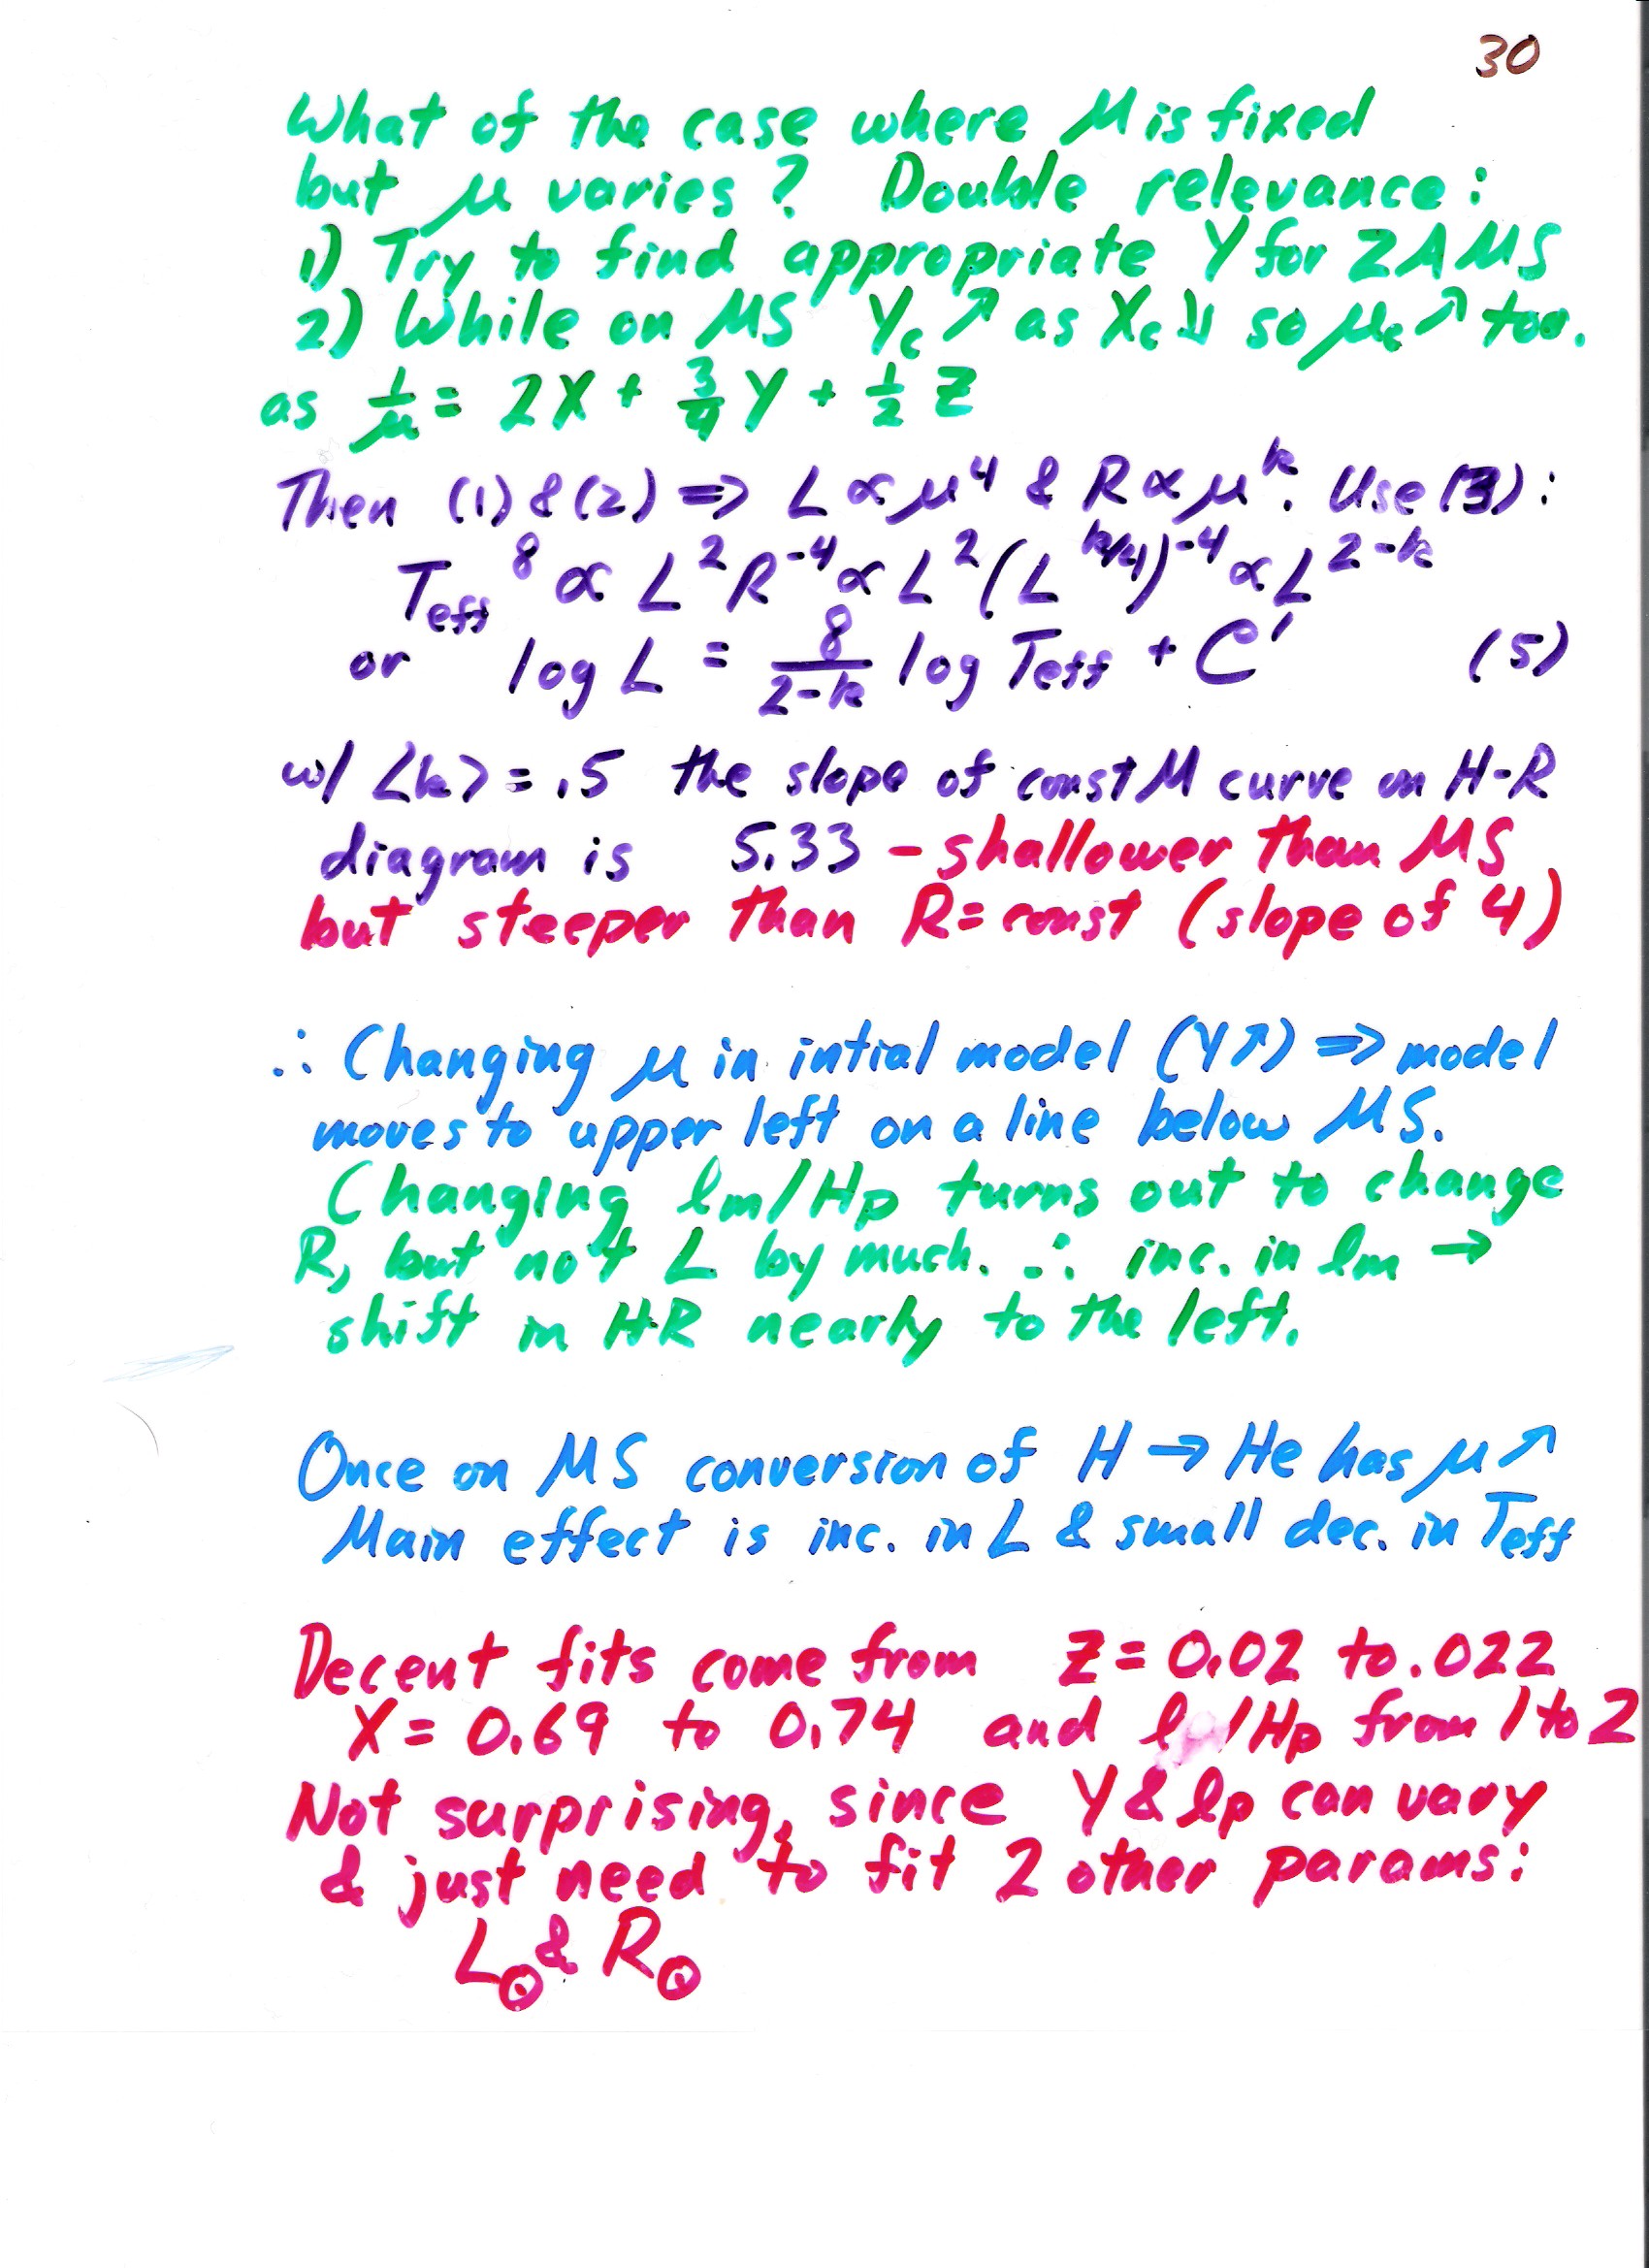 30
What of the case where M is fixed
but μ varies? Double relevance:
1) Try to find appropriate Y for ZAMS
2) While on MS Yc ↗ as Xc ↘ so μc ↗ too.
as 1/μ = 2X + 3/4 Y + 1/2 Z
Then (1) & (2) => L ∝ μ^4 & R ∝ μ^k. Use (3):
Teff^8 ∝ L^2 R^-4 ∝ L^2 (L^k/4)^-4 ∝ L^2-k
or log L = 8/(2-k) log Teff + C' (5)
w/ <k> = .5 the slope of const M curve on H-R
diagram is 5.33 - shallower than MS
but steeper than R = const (slope of 4)
∴ Changing μ in intial model (Y↗) => model
moves to upper left on a line below MS.
Changing lm/Hp turns out to change
R, but not L by much. ∴ inc. in lm →
shift in HR nearly to the left.
Once on MS conversion of H → He has μ ↗
Main effect is inc. in L & small dec. in Teff
Decent fits come from Z = 0.02 to .022
X = 0.69 to 0.74 and l /Hp from 1 to 2
Not surprising, since Y & lp can vary
& just need to fit 2 other params:
L⊙ & R⊙